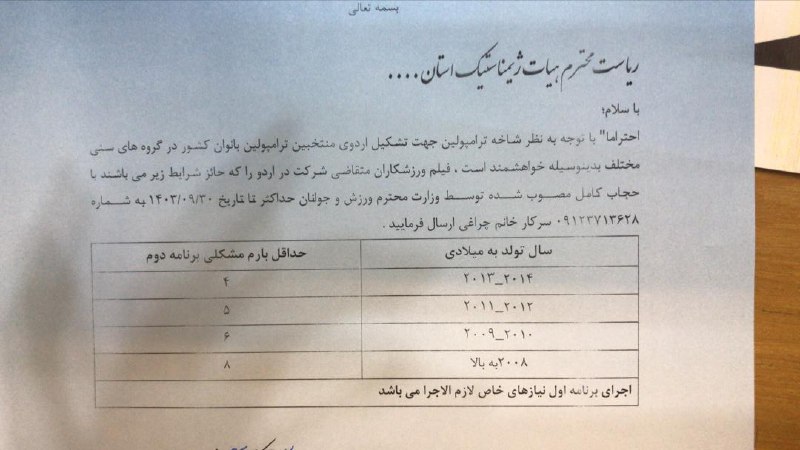 بسمه تعالی
ریاست محترم هیات ژیمناستیک استان....
با سلام؛
احتراما" با توجه به نظر شاخه ترامپولین جهت تشکیل اردوی منتخبین ترامپولین بانوان کشور در گروه های سنی
مختلف بدینوسیله خواهشمند است ، فیلم ورزشکاران متقاضی شرکت در اردو را که حائز شرایط زیر می باشند با
حجاب کامل مصوب شده توسط وزارت محترم ورزش و جوانان حداکثر تا تاریخ ۱۴۰۳/۰۹/۳۰ به شماره
۰۹۱۲۳۷۱۳۶۲۸ سرکار خانم چراغی ارسال فرمایید .
سال تولد به میلادی حداقل بارم مشکلی برنامه دوم
۲۰۱۳_۲۰۱۴ ۴
۲۰۱۱_۲۰۱۲ ۵
۲۰۰۹_۲۰۱۰ ۶
۲۰۰۸به بالا ۸
اجرای برنامه اول نیازهای خاص لازم الاجرا می باشد